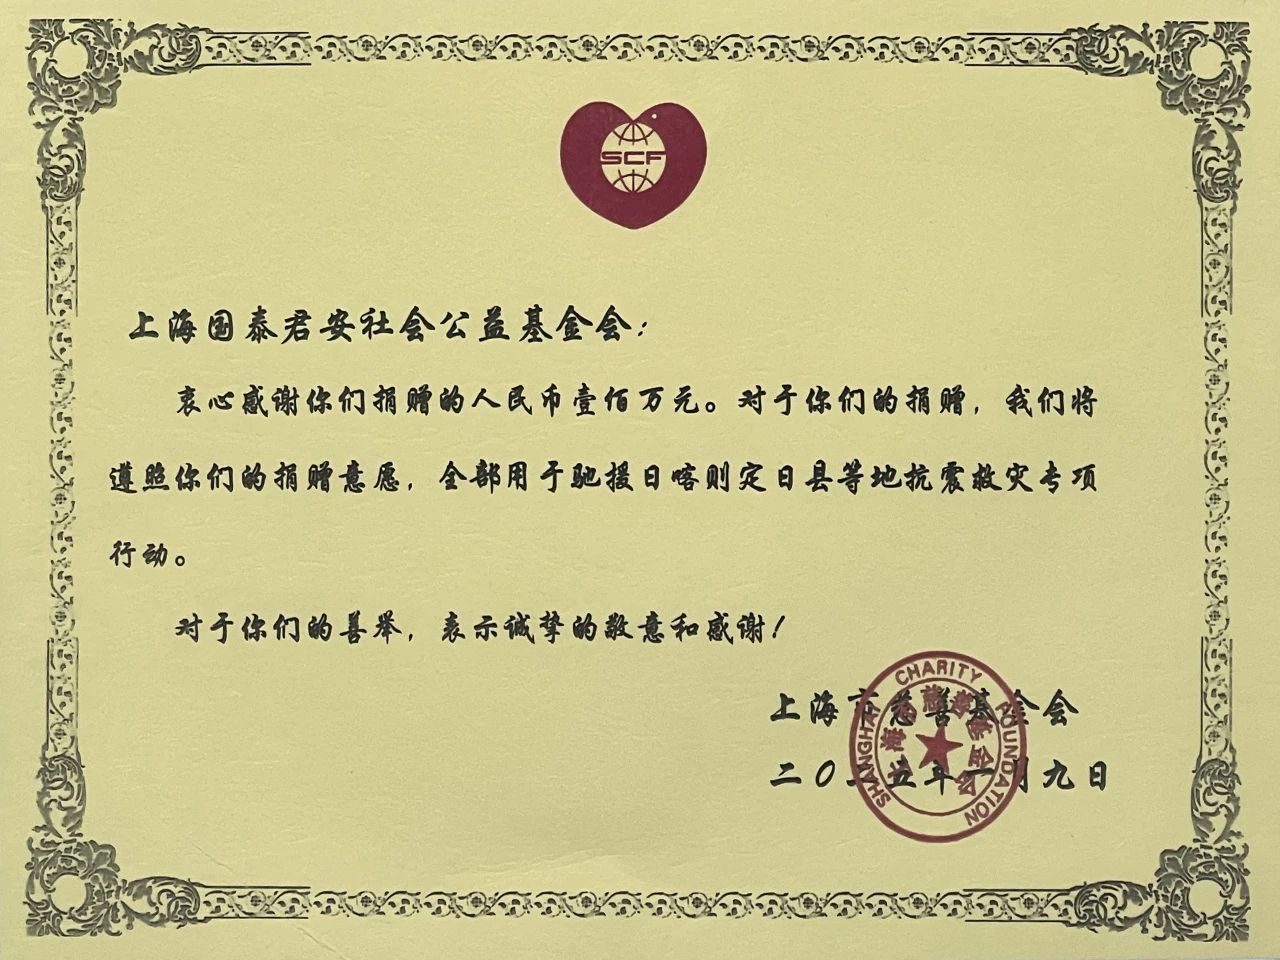 SCF
上海国泰君安社会公益基金会：
衷心感谢你们捐赠的人民币壹佰万元。对于你们的捐赠，我们将
遵照你们的捐赠意愿，全部用于驰援日喀则定日县等地抗震救灾专项
行动。
对于你们的善举，表示诚挚的敬意和感谢！
上海市慈善基金会
二〇二五年一月九日
SHANGHAI CHARITY FOUNDATION
上海市慈善基金会